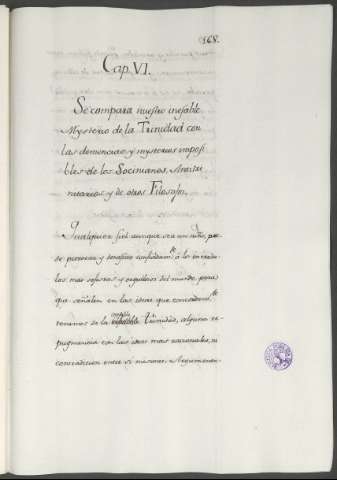 168.
Cap. VI.
Se compara nuestro inefable
Mysterio de la Trinidad con
las demencias y mysterios imposi
bles de los Socinianos, Antitri
nitarios y de otros Filosofos.
Qualquier fiel aunque sea un niño, pue
de provocar y desafiar confiadam.te à los incredu
los mas sofistas y orgullosos del mundo, para
que señalen en las ideas que concordem.te
tenemos de la inefable Trinidad, alguna re
pugnancia con las ideas mas racionales, ni
contradicion entre sí mismas. Arguments